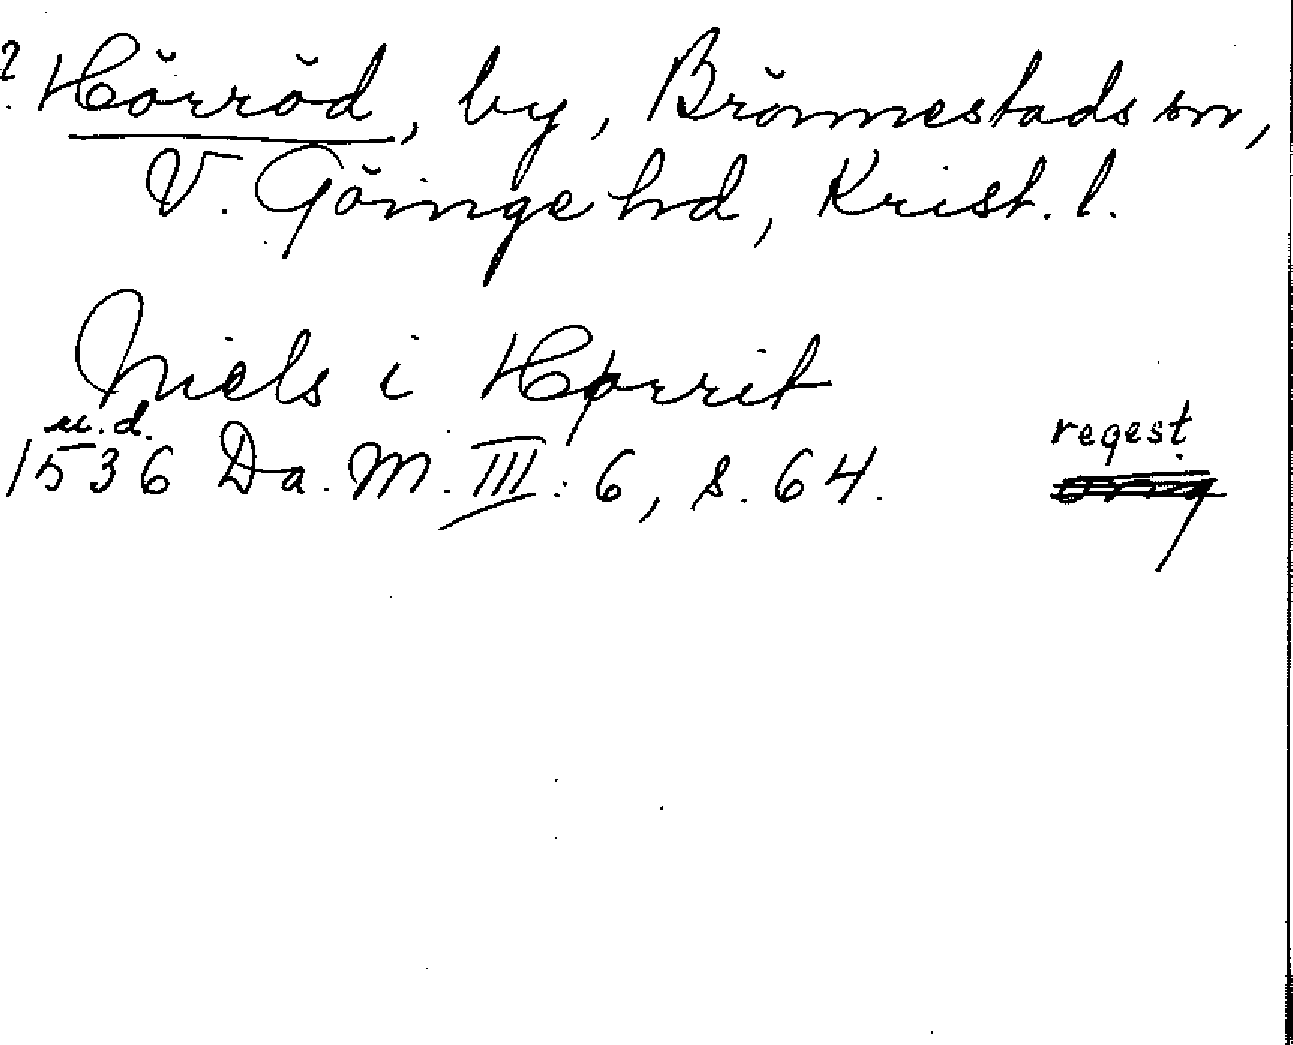 ? Hörröd, by, Brönnestads sn,
V. Göinge hd, Krist. l.
Niels i Hørrit
u. d.
1536 Da. M. III: 6, s. 64.
regest.
orig